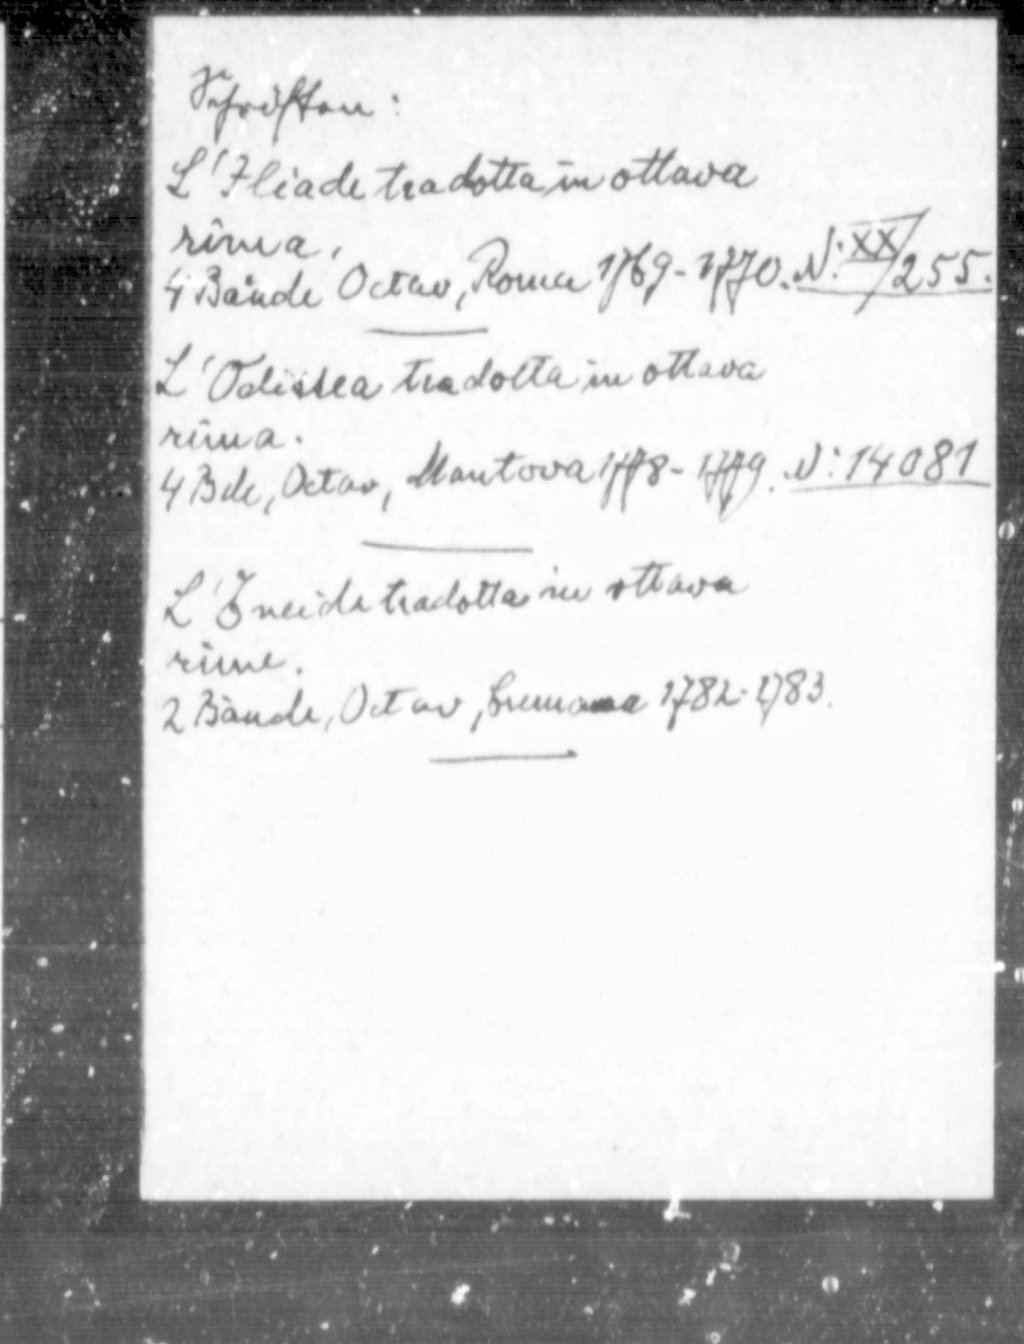 Schriften:
L'Iliade tradotta in ottava
rima.
4 Bände Octav, Roma 1769-1770. N: XX/255.
L'Odissea tradotta in ottava
rima.
4 Bde, Octav, Mantova 1778-1779. N: 14081
L'Eneide tradotta in ottava
rime.
2 Bände, Octav, 1782-1783.